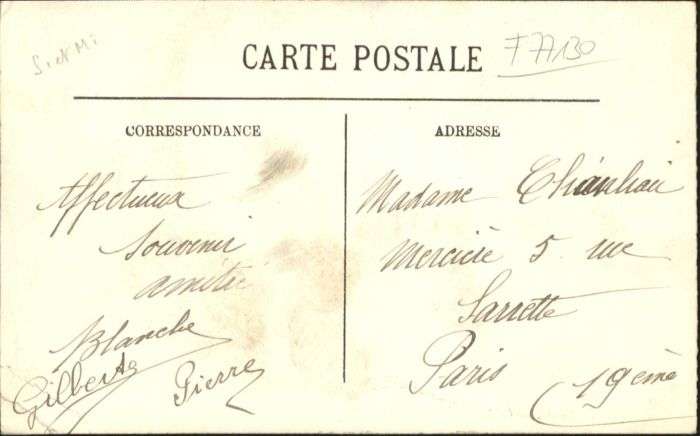 S et M
F 77130
CARTE POSTALE
CORRESPONDANCE
Affectueux
Souvenir
amitié
Blanche
Gilberte Pierre
ADRESSE
Madame
Mercière 5 rue
Sarrette
Paris
(19ème